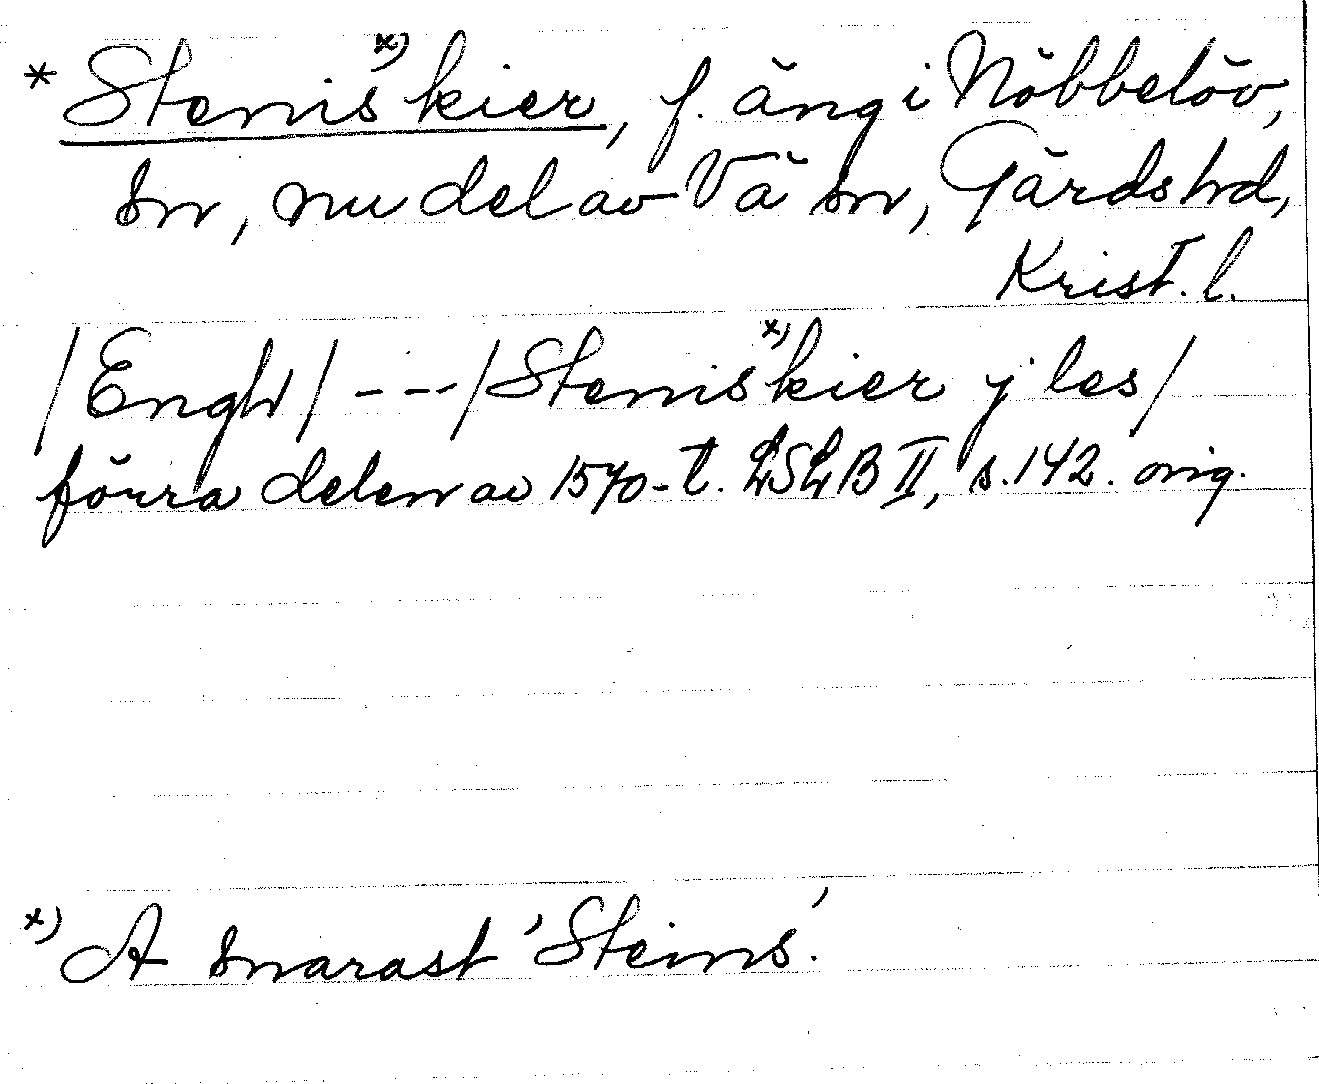 * Stenis x) kier, f. äng i Nöbbelöv,
sn, nu del av Vä sn, Gärds hd,
Krist. l.
/Engh/ - - - /Stenis x) kier y les/
förra delen av 1570-t. LSLB II, s. 142. orig.
x) A snarast 'Steins'.